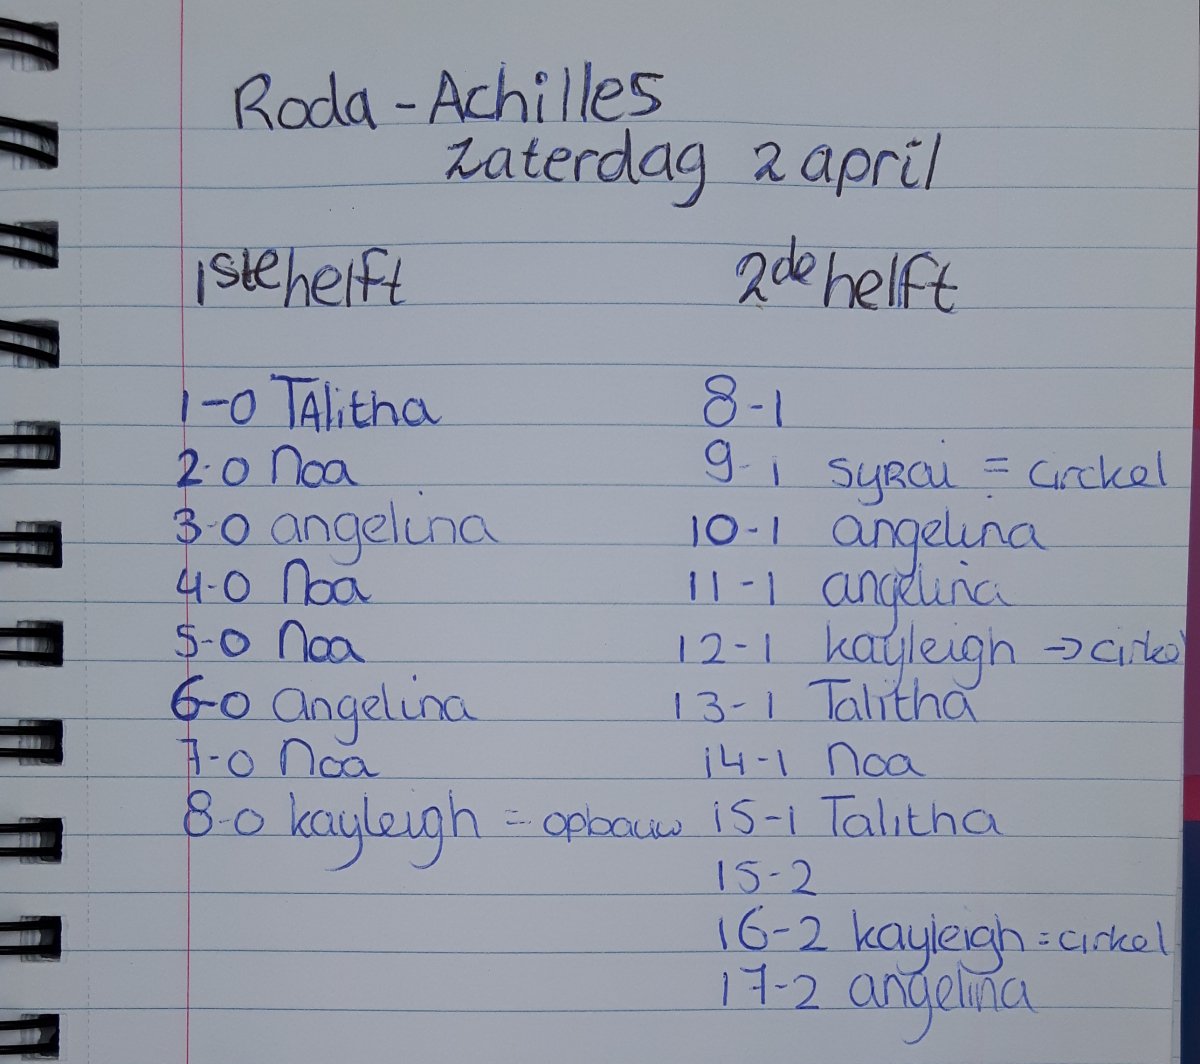 Roda - Achilles
zaterdag 2 april
1ste helft
1-0 TAlitha
2-0 Noa
3-0 angelina
4-0 Noa
5-0 Noa
6-0 angelina
7-0 Noa
8-0 kayleigh = opbouw
2de helft
8-1
9-1 syRai = cirkel
10-1 angelina
11-1 angelina
12-1 kayleigh → cirkel
13-1 Talitha
14-1 Noa
15-1 Talitha
15-2
16-2 kayleigh = cirkel
17-2 angelina